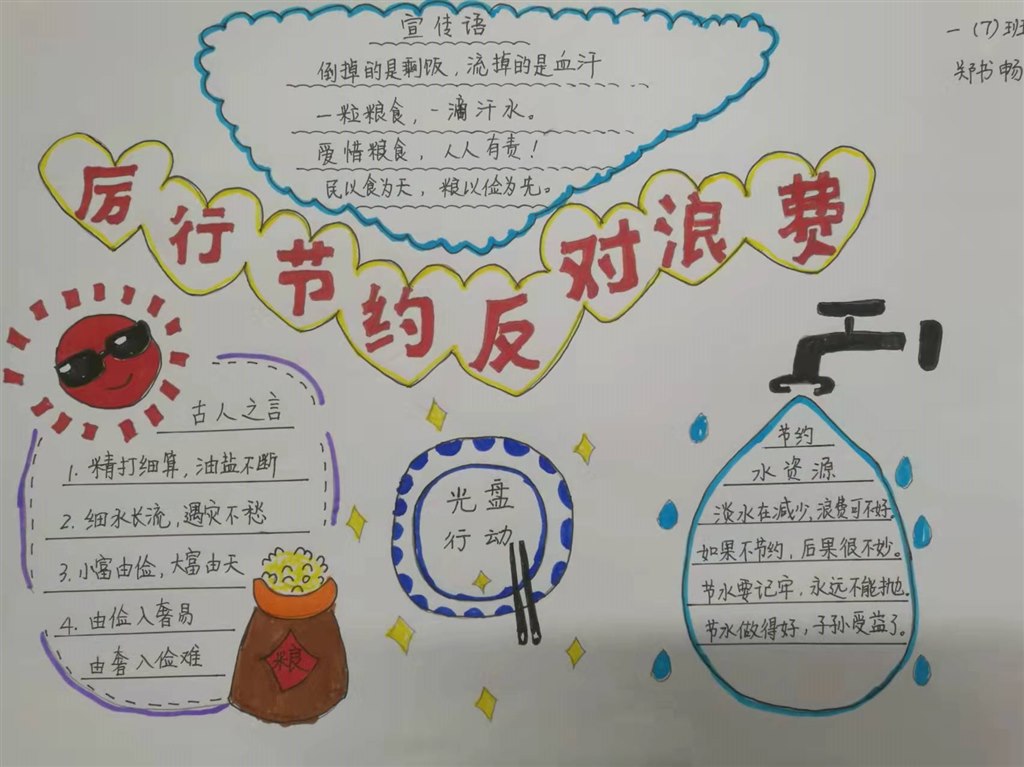 一(7)班
郑书畅
宣传语
倒掉的是剩饭，流掉的是血汗
一粒粮食，一滴汗水。
爱惜粮食，人人有责！
民以食为天，粮以俭为先。
厉行节约反对浪费
古人之言
1. 精打细算，油盐不断
2. 细水长流，遇灾不愁
3. 小富由俭，大富由天
4. 由俭入奢易
由奢入俭难
粮
光盘
行动
节约
水资源
淡水在减少，浪费可不好。
如果不节约，后果很不妙。
节水要记牢，永远不能抛。
节水做得好，子孙受益了。